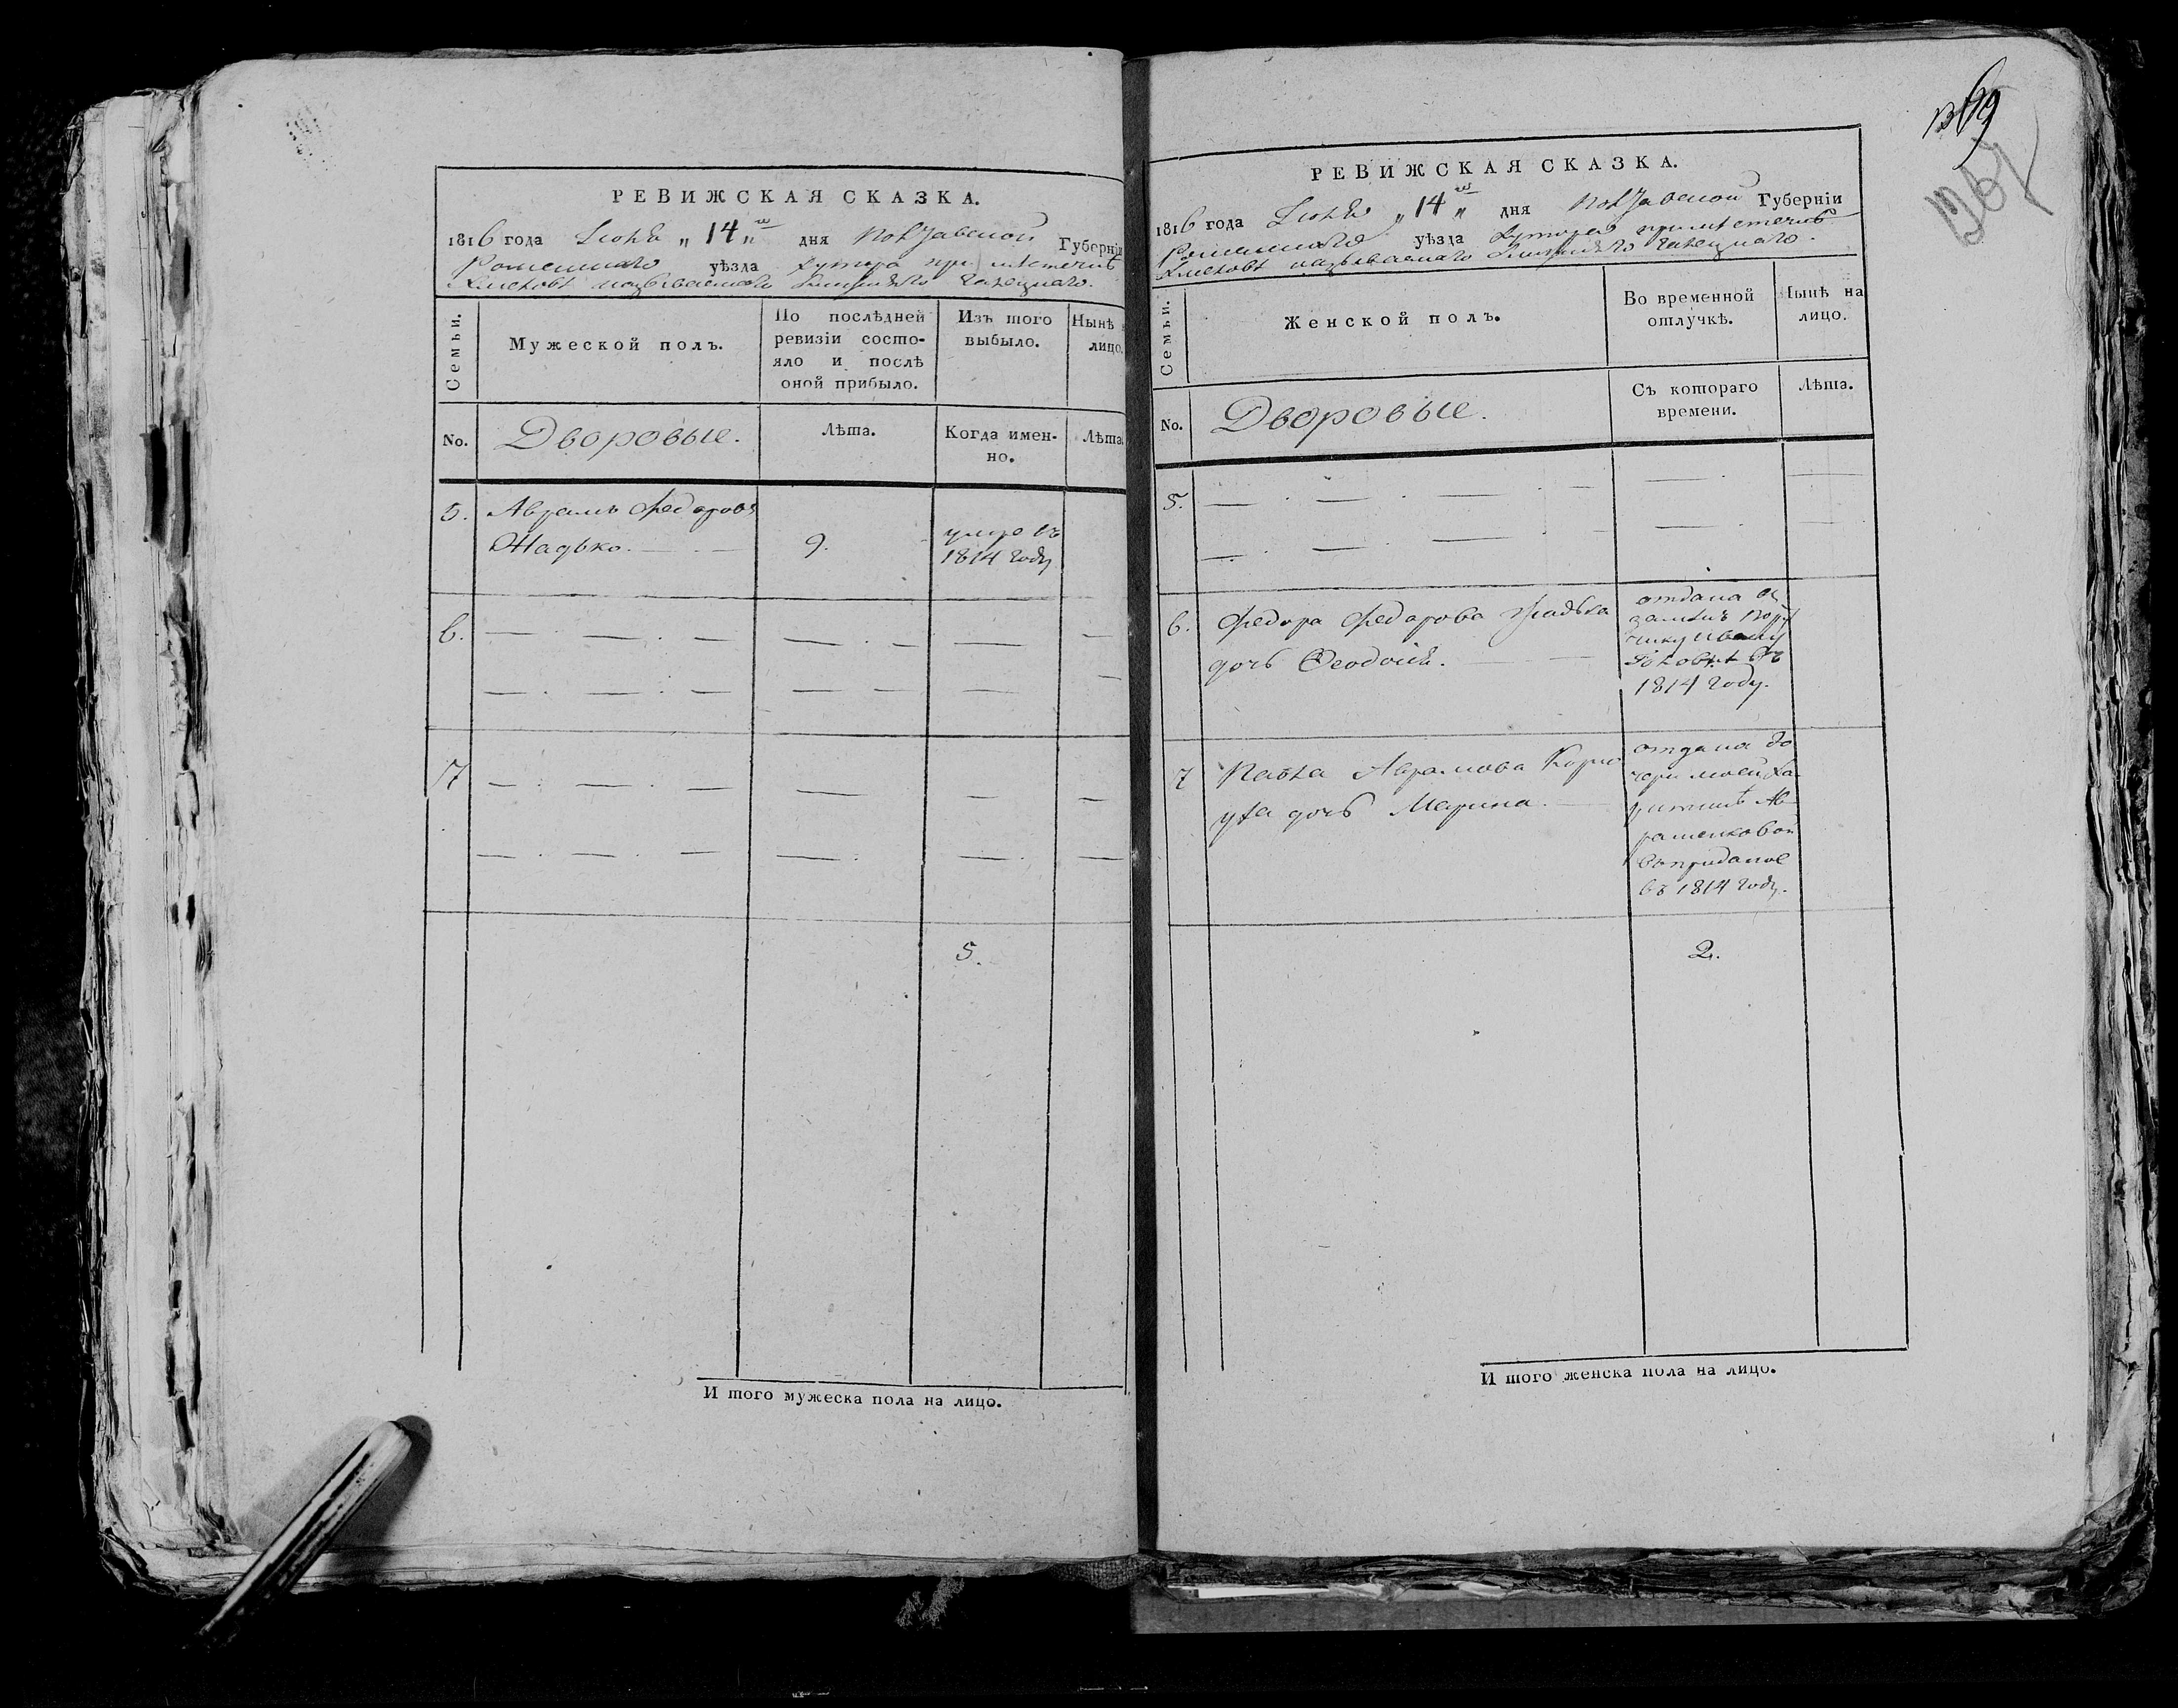 РЕВИЖСКАЯ СКАЗКА.
1816 года Iюня „14„ го дня Полтавской Губернiи
Роменского уѣзда хутора при мѣстечкѣ
называемого
Семьи.
Мужеской полъ.
По послѣдней ревизiи состояло и послѣ оной прибыло.
Изъ того выбыло.
Нынѣ
лицо.
No.
Дворовые.
Лѣта.
Когда именно.
Лѣта.
5.
Аврамъ Федоровъ
Жадько.
9.
умре въ
1814 году
6.
7
5.
И того мужеска пола на лицо.
1369
РЕВИЖСКАЯ СКАЗКА.
1816 года Iюня „14„ го дня Полтавской Губернiи
Роменского уѣзда хутора при мѣстечкѣ
называемого
Семьи.
Женской полъ.
Во временной отлучкѣ.
Нынѣ на лицо.
No.
Дворовые.
Съ котораго времени.
Лѣта.
5.
6.
Федора Федорова Жадька
дочь Феодосiя.
отдана
Пору
чику Ивану
въ
1814 году.
7
Павла Аврамова Корно
уха дочь Марина.
отдана до
чери моей Ха
ритинѣ Ав
раменковой
въ приданое
въ 1814 году.
2.
И того женска пола на лицо.